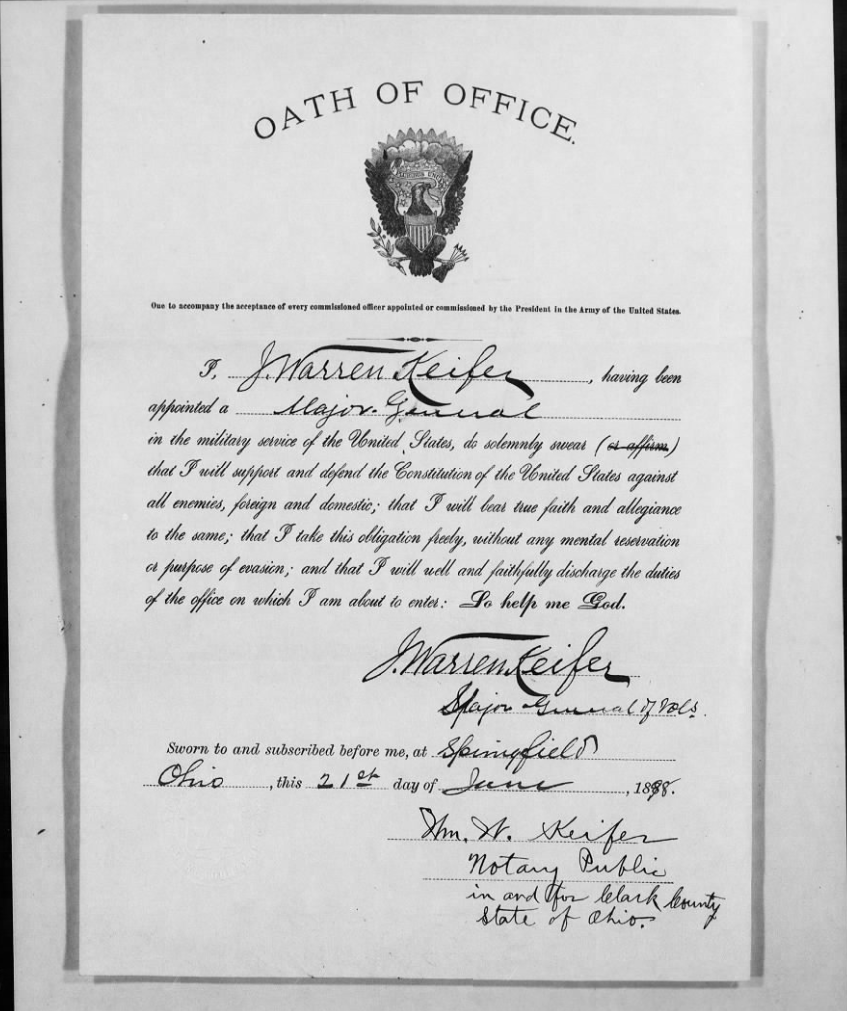 OATH OF OFFICE.
One to accompany the acceptance of every commissioned officer appointed or commissioned by the President in the Army of the United States.
I, J. Warren Keifer, having been
appointed a Major-General
in the military service of the United States, do solemnly swear (or affirm)
that I will support and defend the Constitution of the United States against
all enemies, foreign and domestic; that I will bear true faith and allegiance
to the same; that I take this obligation freely, without any mental reservation
or purpose of evasion; and that I will well and faithfully discharge the duties
of the office on which I am about to enter: So help me God.
J. Warren Keifer
Major-General of Vols.
Sworn to and subscribed before me, at Springfield
Ohio, this 21st day of June, 1898.
Wm. W. Keifer
Notary Public
in and for Clark County
State of Ohio.